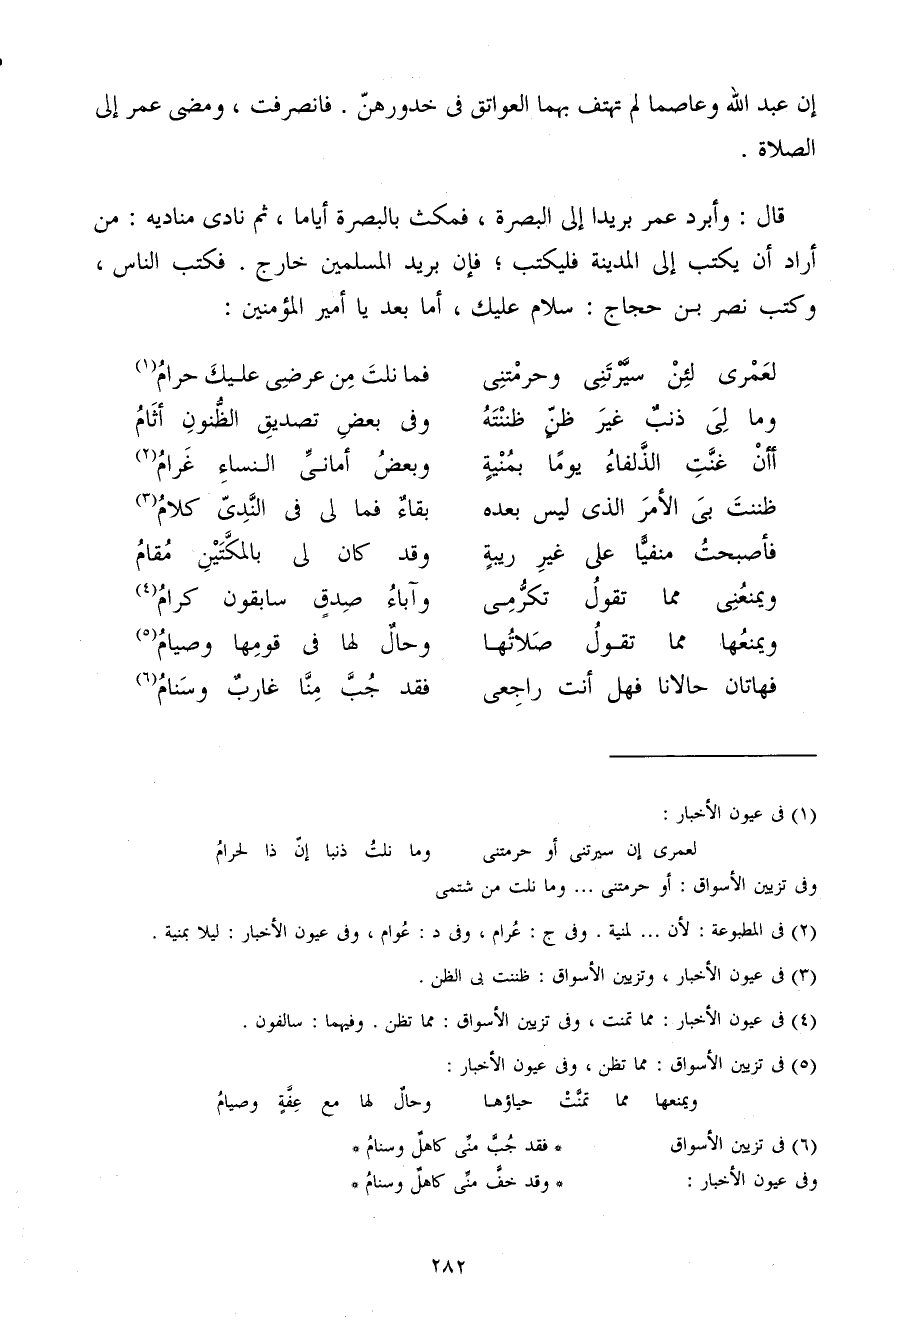 إن عبد الله وعاصما لم تهتف بهما العواتق فى خدورهنّ . فانصرفت ، ومضى عمر إلى
الصلاة .
قال : وأبرد عمر بريدا إلى البصرة ، فمكث بالبصرة أياما ، ثم نادى مناديه : من
أراد أن يكتب إلى المدينة فليكتب ؛ فإن بريد المسلمين خارج . فكتب الناس ،
وكتب نصر بن حجاج : سلام عليك ، أما بعد يا أمير المؤمنين :
لعَمْرى لئِنْ سيَّرْتَنِى وحرمْتنِى فما نلتَ مِن عرضِى عليكَ حرامُ(١)
وما لِىَ ذنبٌ غيرَ ظنٍّ ظننْتَهُ وفى بعضِ تصديقِ الظُّنونِ أثَامُ
أأنْ غنَّتِ الذَّلفاءُ يومًا بمُنْيةٍ وبعضُ أمانىِّ النساءِ غَرامُ(٢)
ظننتَ بىَ الأمرَ الذى ليس بعده بقاءٌ فما لى فى النَّدِىّ كلامُ(٣)
فأصبحتُ منفيًّا على غيرِ ريبةٍ وقد كان لى بالمكَّتَيْنِ مُقامُ
ويمنعُنِى مما تقولُ تكرُّمِى وآباءُ صِدقٍ سابقون كرامُ(٤)
ويمنعُها مما تقولُ صَلاتُها وحالٌ لها فى قومِها وصيامُ(٥)
فهاتان حالانا فهل أنت راجِعى فقد جُبَّ مِنَّا غاربٌ وسَنامُ(٦)
(١) فى عيون الأخبار :
لعمرى إن سيرتنى أو حرمتنى وما نلتُ ذنبا إنّ ذا لحرامُ
وفى تزيين الأسواق : أو حرمتنى ... وما نلت من شتمى
(٢) فى المطبوعة : لأن ... لمنية . وفى ج : عُرام ، وفى د : عُوام ، وفى عيون الأخبار : ليلا بمنية .
(٣) فى عيون الأخبار ، وتزيين الأسواق : ظننت بى الظن .
(٤) فى عيون الأخبار : مما تمنت ، وفى تزيين الأسواق : مما تظن . وفيهما : سالفون .
(٥) فى تزيين الأسواق : مما تظن ، وفى عيون الأخبار :
ويمنعها مما تمنَّتْ حياؤها وحالٌ لها مع عِفَّةٍ وصيامُ
(٦) فى تزيين الأسواق * فقد جُبَّ منِّى كاهلٌ وسنامُ *
وفى عيون الأخبار : * وقد خفَّ منِّى كاهلٌ وسنامُ *
٢٨٢